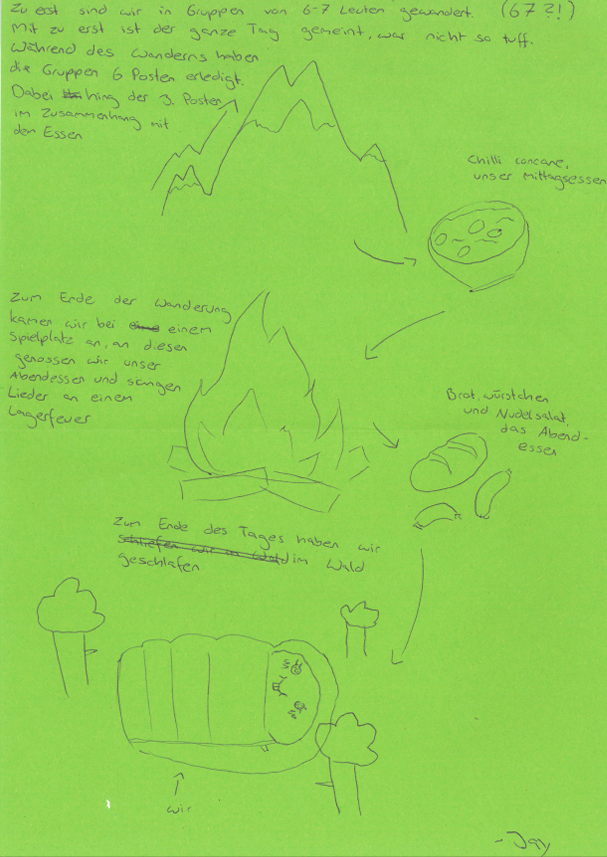 Zu erst sind wir in Gruppen von 6-7 Leuten gewandert. (67?!)
Mit zu erst ist der ganze Tag gemeint, war nicht so tuff.
Während des Wanderns haben
die Gruppen 6 Posten erledigt.
Dabei hing der 3. Posten
im Zusammenhang mit
dem Essen
Chilli concane,
unser Mittagsessen
Zum Ende der Wanderung
kamen wir bei eine einem
Spielplatz an, an diesen
genossen wir unser
Abendessen und sangen
Lieder an einem
Lagerfeuer
Brot, würstchen
und Nudelsalat,
das Abend-
essen
Zum Ende des Tages haben wir
schliefen wir im Wald im Wald
geschlafen
wir
-Jay